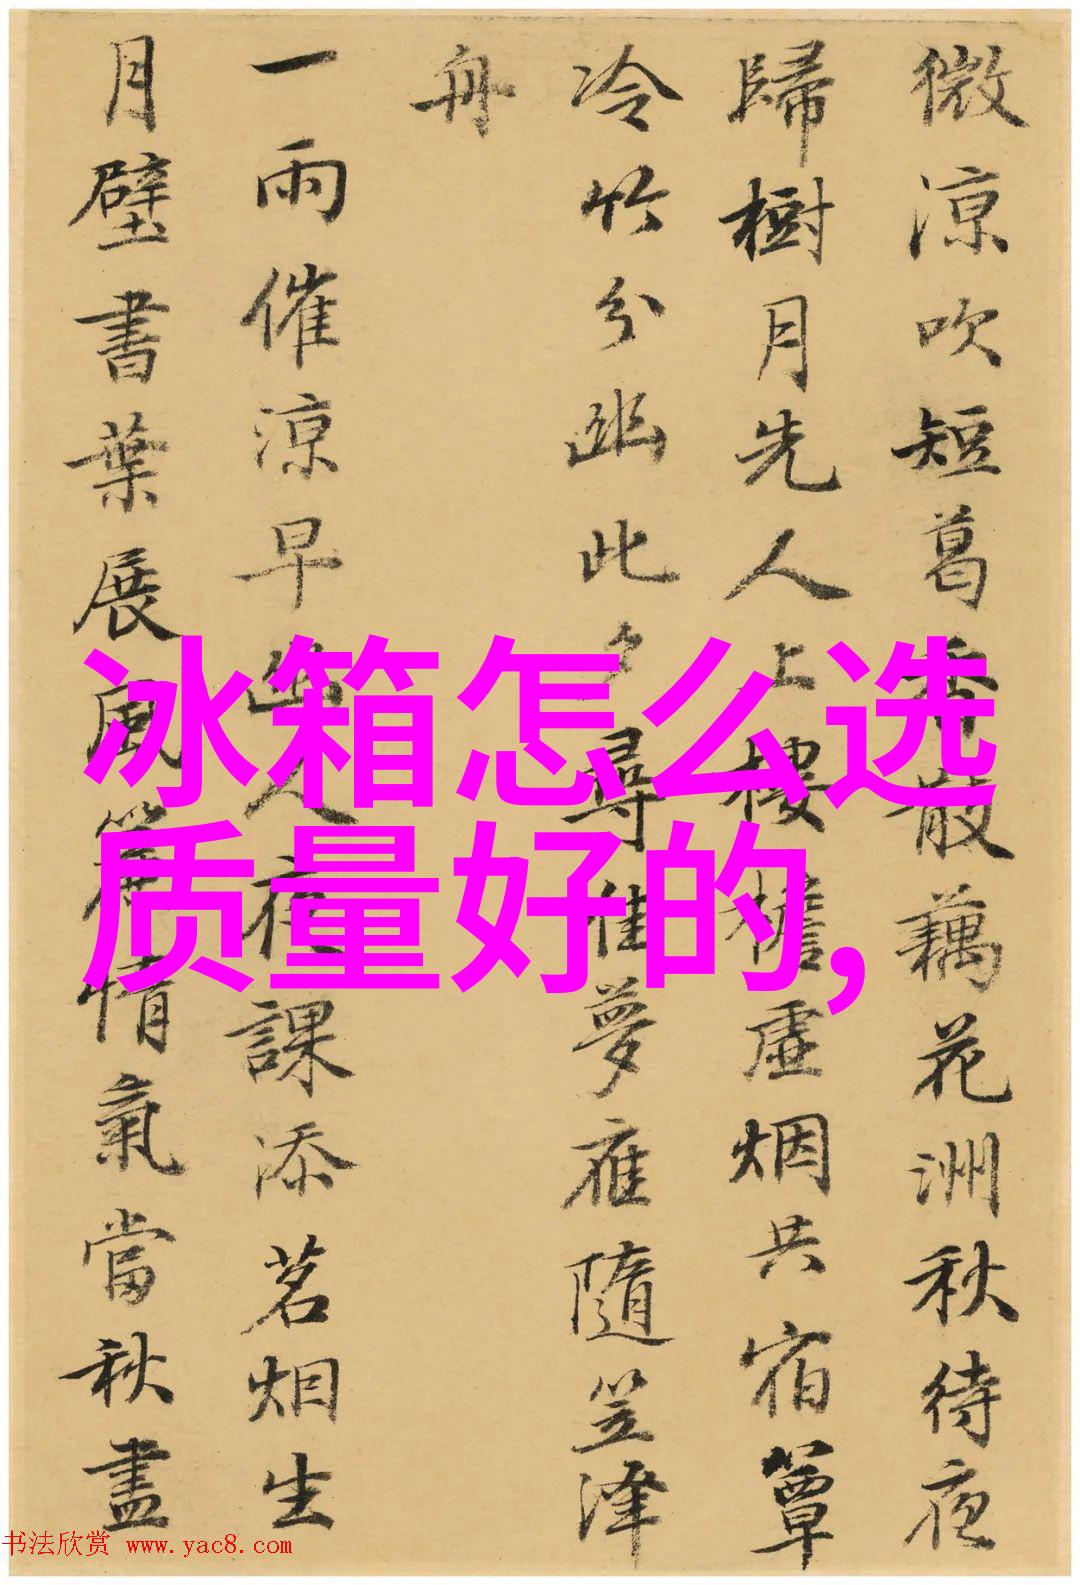 微涼吹短葛香散藕花洲秋待夜
歸樹月先人上樓檐虛烟共宿簟
冷竹分幽此夕尋佳夢應隨笠澤
舟
一雨催涼早幽人夜課添茗烟生
月壁書葉展風簾情氣當秋盡
冰箱怎么选
质量好的,
书法欣赏 www.yac8.com